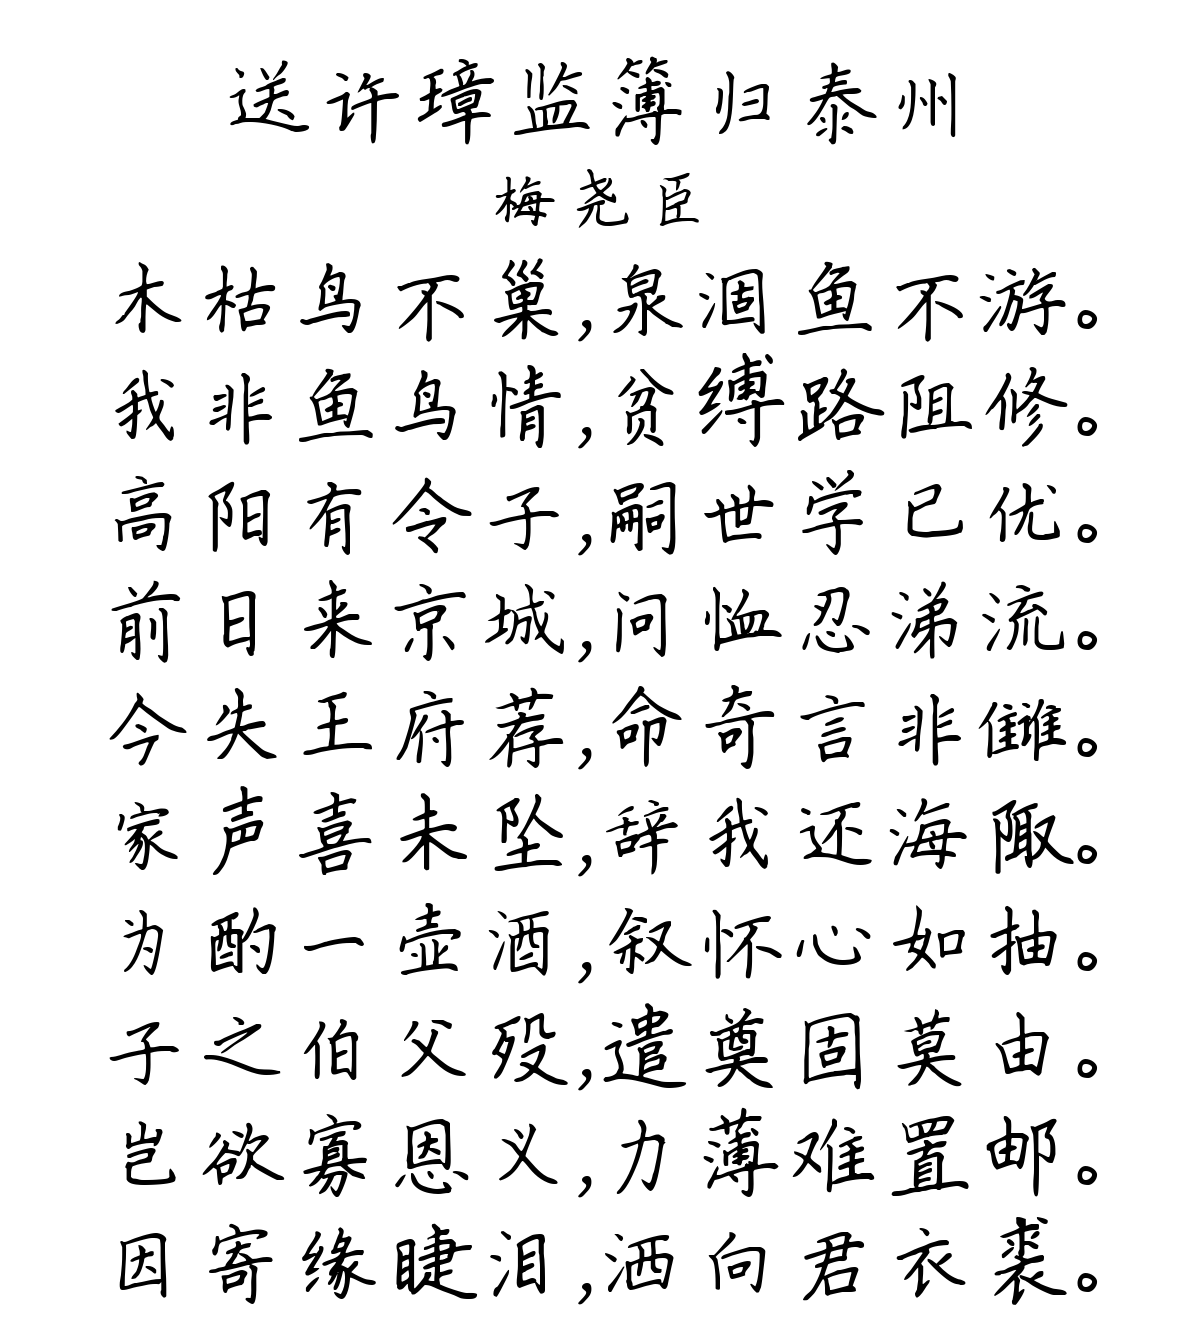 送许璋监簿归泰州
梅尧臣
木枯鸟不巢,泉涸鱼不游。
我非鱼鸟情,贫缚路阻修。
高阳有令子,嗣世学已优。
前日来京城,问恤忍涕流。
今失王府荐,命奇言非雠。
家声喜未坠,辞我还海陬。
为酌一壶酒,叙怀心如抽。
子之伯父殁,遣奠固莫由。
岂欲寡恩义,力薄难置邮。
因寄缘睫泪,洒向君衣裘。